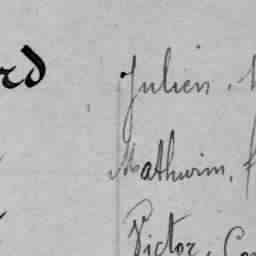 rd Julien,
Mathurin,
Victor,